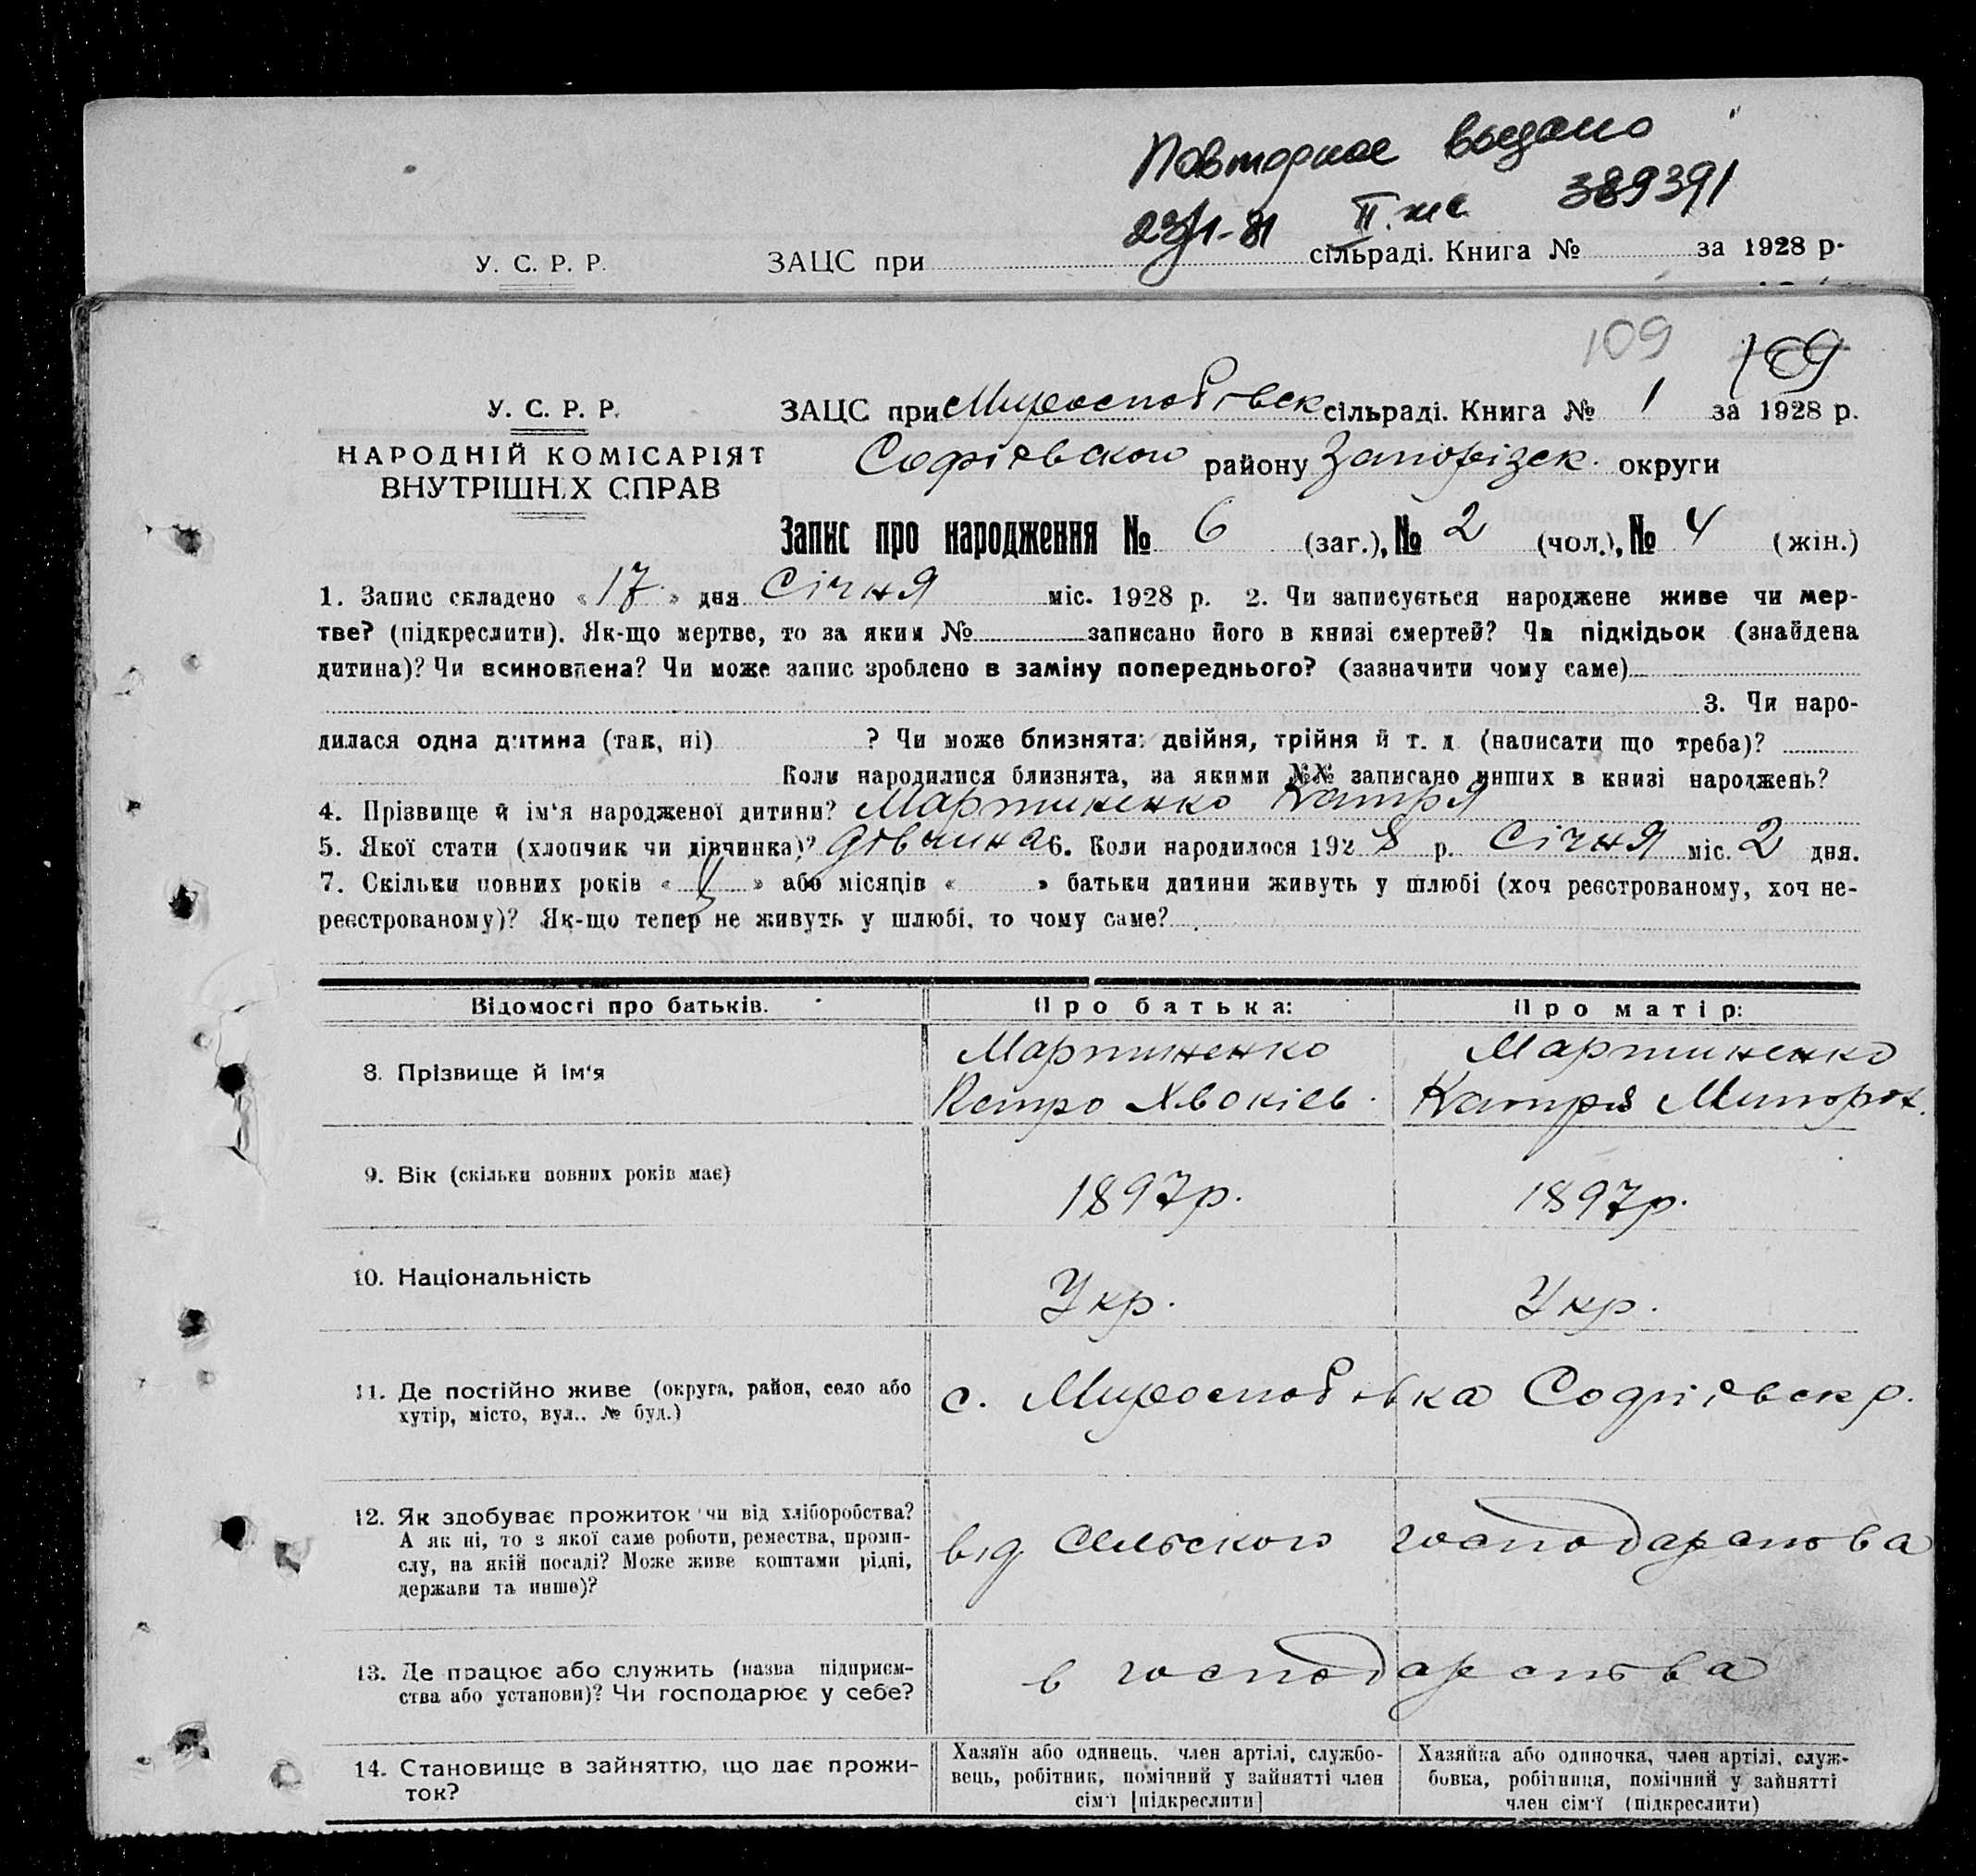 Повторное выдано
23/1-81 II.
389391
У. С. Р. Р. ЗАЦС при сільраді. Книга № за 1928 р.
109 109
У. С. Р. Р. ЗАЦС при сільраді. Книга № 1 за 1928 р.
НАРОДНІЙ КОМІСАРІЯТ Софіївского району Запорізск. округи
ВНУТРІШНІХ СПРАВ
Запис про народження № 6 (заг.), № 2 (чол.), № 4 (жін.)
1. Запис складено « 17 » дня Січня міс. 1928 р. 2. Чи записується народжене живе чи мер-
тве? (підкреслити). Як-що мертве, то за яким № записано його в книзі смертей? Чи підкідьок (знайдена
дитина)? Чи всиновлена? Чи може запис зроблено в заміну попереднього? (зазначити чому саме)
3. Чи наро-
дилася одна дитина (так, ні) ? Чи може близнята: двійня, трійня й т. д. (написати що треба)?
Коли народилися близнята, за якими №№ записано инших в книзі народжень?
4. Прізвище й ім'я народженої дитини? Мартиненко Катря
5. Якої стати (хлопчик чи дівчинка)? дівчина 6. Коли народилося 1928 р. Січня міс. 2 дня.
7. Скільки повних років « » або місяців « » батьки дитини живуть у шлюбі (хоч реєстрованому, хоч не-
реєстрованому)? Як-що тепер не живуть у шлюбі, то чому саме?
Відомості про батьків. Про батька: Про матір:
8. Прізвище й ім'я
Мартиненко
Петро Хвокієв.
Мартиненко
Катря Митроф.
9. Вік (скільки повних років має) 1897р. 1897р.
10. Національність Укр. Укр.
11. Де постійно живе (округа, район, село або
хутір, місто, вул.. № буд.)
с. Софиієвск р.
12. Як здобуває прожиток чи від хліборобства?
А як ні, то з якої саме роботи, ремества, проми-
слу, на якій посаді? Може живе коштами рідні,
держави та инше)?
від Сельского господарства
13. Де працює або служить (назва підприєм-
ства або установи)? Чи господарює у себе?
в господарства
14. Становище в зайняттю, що дає прожи-
ток?
Хазяїн або одинець, член артілі, службо-
вець, робітник, помічний у зайнятті член
сім'ї [підкреслити]
Хазяйка або одиночка, член артілі, служ-
бовка, робітниця, помічний у зайнятті
член сім'ї (підкреслити)